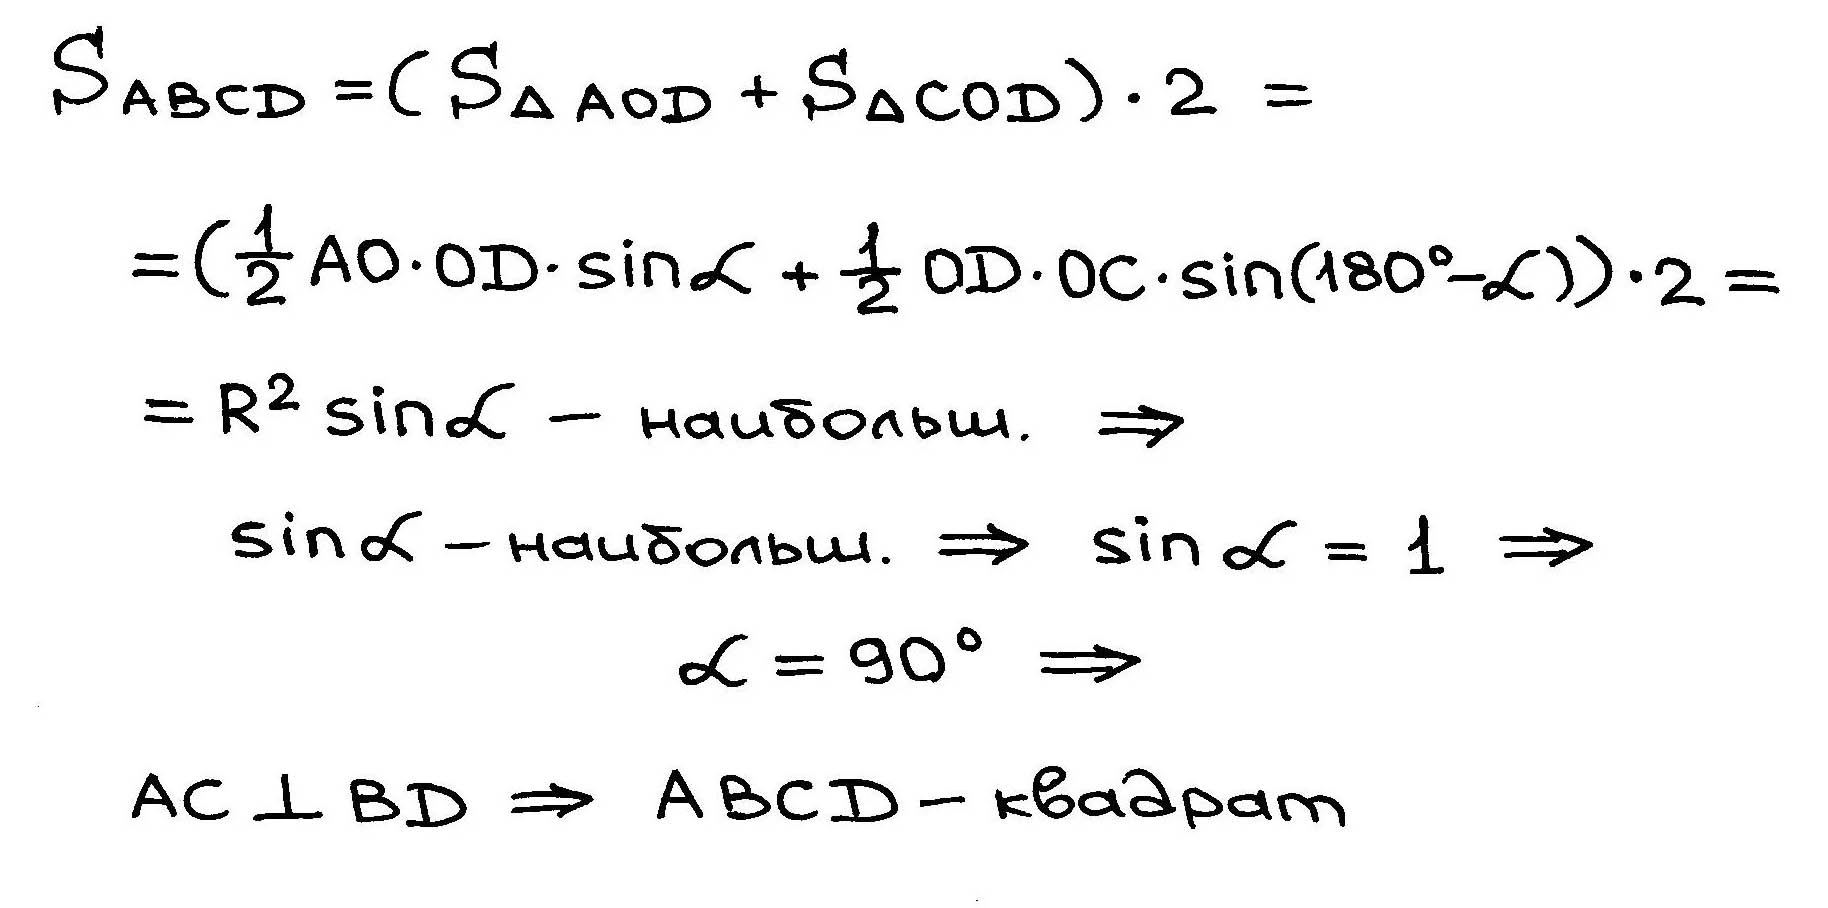 S ABCD = (S Δ AOD + S Δ COD) · 2 =
= (1/2 AO · OD · sin α + 1/2 OD · OC · sin(180° - α)) · 2 =
= R² sin α – наибольш. ⇒
sin α – наибольш. ⇒ sin α = 1 ⇒
α = 90° ⇒
AC ⊥ BD ⇒ ABCD – квадрат